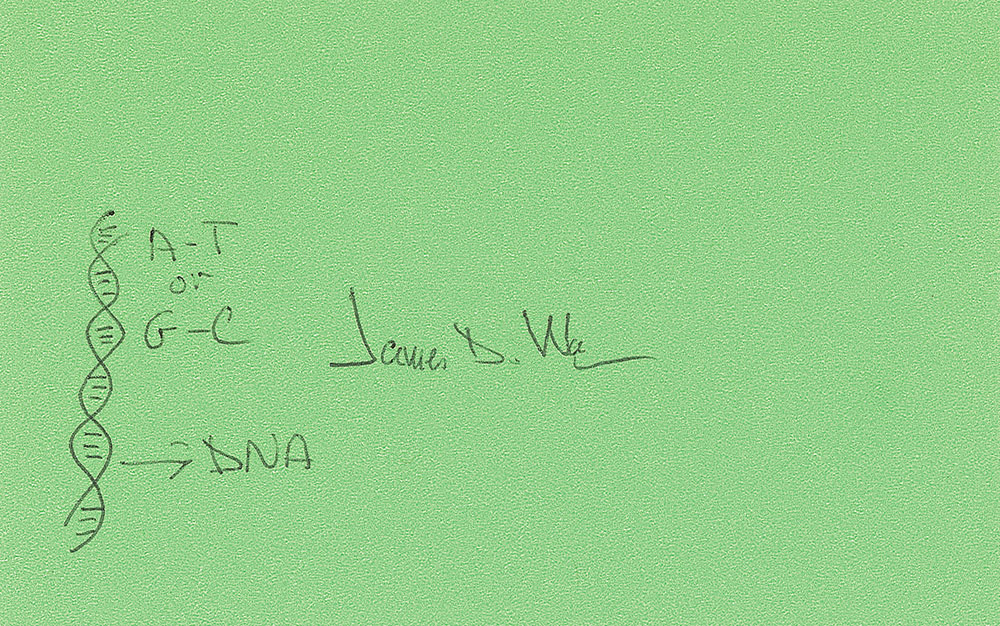 A-T
or
G-C
James D. Wa
→ DNA